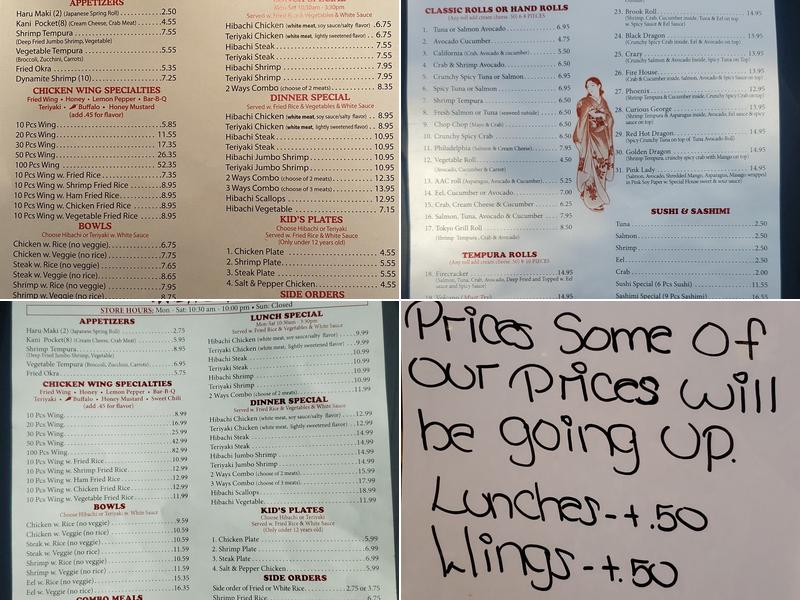 APPETIZERS
Haru Maki (2) (Japanese Spring Roll) 2.50
Kani Pocket(8) (Cream Cheese, Crab Meat) 4.55
Shrimp Tempura 7.55
(Deep Fried Jumbo Shrimp, Vegetable)
Vegetable Tempura 5.55
(Broccoli, Zucchini, Carrots)
Fried Okra 5.35
Dynamite Shrimp (10) 7.25
CHICKEN WING SPECIALTIES
Fried Wing • Honey • Lemon Pepper • Bar-B-Q
Teriyaki • Buffalo • Honey Mustard
(add .45 for flavor)
10 Pcs Wing 5.85
20 Pcs Wing 11.55
30 Pcs Wing 17.35
50 Pcs Wing 26.35
100 Pcs Wing 52.35
10 Pcs Wing w. Fried Rice 7.35
10 Pcs Wing w. Shrimp Fried Rice 8.95
10 Pcs Wing w. Ham Fried Rice 8.95
10 Pcs Wing w. Chicken Fried Rice 8.95
10 Pcs Wing w. Vegetable Fried Rice 8.95
BOWLS
Choose Hibachi or Teriyaki w. White Sauce
Chicken w. Rice (no veggie) 6.75
Chicken w. Veggie (no rice) 7.75
Steak w. Rice (no veggie) 7.65
Steak w. Veggie (no rice) 8.65
Shrimp w. Rice (no veggie) 7.95
Shrimp w. Veggie (no rice) 8.75
Mon-Sat 10:30am - 3:30pm
Served w. Fried Rice & Vegetables & White Sauce
Hibachi Chicken (white meat, soy sauce/salty flavor) 6.75
Teriyaki Chicken (white meat, lightly sweetened flavor) 6.75
Hibachi Steak 7.55
Teriyaki Steak 7.55
Hibachi Shrimp 7.95
Teriyaki Shrimp 7.95
2 Ways Combo (choose of 2 meats) 8.35
DINNER SPECIAL
Served w. Fried Rice & Vegetables & White Sauce
Hibachi Chicken (white meat, soy sauce/salty flavor) 8.95
Teriyaki Chicken (white meat, lightly sweetened flavor) 8.95
Hibachi Steak 10.95
Teriyaki Steak 10.95
Hibachi Jumbo Shrimp 10.95
Teriyaki Jumbo Shrimp 10.95
2 Ways Combo (choose of 2 meats) 12.35
3 Ways Combo (choose of 3 meats) 13.95
Hibachi Scallops 12.95
Hibachi Vegetable 7.15
KID'S PLATES
Choose Hibachi or Teriyaki
Served w. Fried Rice & White Sauce
(Only under 12 years old)
1. Chicken Plate 4.55
2. Shrimp Plate 5.55
3. Steak Plate 5.55
4. Salt & Pepper Chicken 4.55
SIDE ORDERS
CLASSIC ROLLS OR HAND ROLLS
(Any roll add cream cheese .50) 8 PIECES
1. Tuna or Salmon Avocado 6.95
2. Avocado Cucumber 4.75
3. California (Crab, Avocado & cucumber) 5.50
4. Crab & Shrimp Avocado 6.50
5. Crunchy Spicy Tuna or Salmon 6.95
6. Spicy Tuna or Salmon 6.95
7. Shrimp Tempura 6.50
8. Fresh Salmon or Tuna (seaweed outside) 6.50
9. Chop Chop (Mayo & Crab) 6.50
10. Crunchy Spicy Crab 6.50
11. Philadelphia (Salmon & Cream Cheese) 7.95
12. Vegetable Roll 4.50
(Avocado, Cucumber & Carrot)
13. AAC roll (Asparagus, Avocado & Cucumber) 5.25
14. Eel, Cucumber or Avocado 7.00
15. Crab, Cream Cheese & Cucumber 6.25
16. Salmon, Tuna, Avocado & Cucumber 7.95
17. Tokyo Grill Roll 8.50
(Shrimp Tempura, Crab & Avocado)
TEMPURA ROLLS
(Any roll add cream cheese .50) 8-10 PIECES
18. Firecracker 14.95
(Salmon, Tuna, Crab, Avocado, Deep Fried and Topped w. Eel sauce and Spicy Sauce)
23. Brook Roll 14.95
(Shrimp, Crab, Cucumber inside, Tuna & Eel on top w. Spicy Sauce & Eel Sauce)
24. Black Dragon 13.95
(Crunchy Spicy Crab inside, Eel & Avocado on top)
25. Crazy 13.95
(Crunchy Salmon & Avocado Inside, Spicy Tuna on Top)
26. Fire House 13.95
27. Phoenix 12.95
(Shrimp Tempura & Cucumber inside, Crunchy Crab on top)
28. Curious George 13.95
29. Red Hot Dragon 14.95
(Spicy Crunchy Tuna on top of Tuna Avocado Roll)
30. Golden Dragon 14.95
(Shrimp Tempura, crunchy crab with Mango on top)
31. Pink Lady 14.95
(Salmon, Avocado, Shredded Mango, Asparagus, Masago wrapped in Pink Soy Paper w. Special House sweet & sour sauce)
SUSHI & SASHIMI
Tuna 2.50
Salmon 2.50
Shrimp 2.50
Eel 2.50
Crab 2.00
Sushi Special (6 Pcs Sushi) 11.55
Sashimi Special (9 Pcs Sashimi) 16.55
STORE HOURS: Mon - Sat: 10:30 am - 10:00 pm • Sun: Closed
APPETIZERS
Haru Maki (2) (Japanese Spring Roll) 2.75
Kani Pocket(8) (Cream Cheese, Crab Meat) 5.95
Shrimp Tempura 8.95
(Deep Fried Jumbo Shrimp, Vegetable)
Vegetable Tempura (Broccoli, Zucchini, Carrots) 6.95
Fried Okra 5.75
CHICKEN WING SPECIALTIES
Fried Wing • Honey • Lemon Pepper • Bar-B-Q
Teriyaki • Buffalo • Honey Mustard • Sweet Chili
(add .45 for flavor)
10 Pcs Wing 8.99
20 Pcs Wing 16.99
30 Pcs Wing 25.99
50 Pcs Wing 42.99
100 Pcs Wing 82.99
10 Pcs Wing w. Fried Rice 10.99
10 Pcs Wing w. Shrimp Fried Rice 12.99
10 Pcs Wing w. Ham Fried Rice 12.99
10 Pcs Wing w. Chicken Fried Rice 12.99
10 Pcs Wing w. Vegetable Fried Rice 11.99
BOWLS
Choose Hibachi or Teriyaki w. White Sauce
Chicken w. Rice (no veggie) 9.59
Chicken w. Veggie (no rice) 10.59
Steak w. Rice (no veggie) 10.59
Steak w. Veggie (no rice) 11.59
Shrimp w. Rice (no veggie) 10.59
Shrimp w. Veggie (no rice) 11.59
Eel w. Rice (no veggie) 15.35
Eel w. Veggie (no rice) 16.35
COMBO MEALS
LUNCH SPECIAL
Mon-Sat 10:30am - 3:30pm
Served w. Fried Rice & Vegetables & White Sauce
Hibachi Chicken (white meat, soy sauce/salty flavor) 9.99
Teriyaki Chicken (white meat, lightly sweetened flavor) 9.99
Hibachi Steak 10.99
Teriyaki Steak 10.99
Hibachi Shrimp 10.99
Teriyaki Shrimp 10.99
2 Ways Combo (choose of 2 meats) 11.99
DINNER SPECIAL
Served w. Fried Rice & Vegetables & White Sauce
Hibachi Chicken (white meat, soy sauce/salty flavor) 12.99
Teriyaki Chicken (white meat, lightly sweetened flavor) 12.99
Hibachi Steak 14.99
Teriyaki Steak 14.99
Hibachi Jumbo Shrimp 14.99
Teriyaki Jumbo Shrimp 14.99
2 Ways Combo (choose of 2 meats) 15.99
3 Ways Combo (choose of 3 meats) 17.99
Hibachi Scallops 18.99
Hibachi Vegetable 11.99
KID'S PLATES
Choose Hibachi or Teriyaki
Served w. Fried Rice & White Sauce
(Only under 12 years old)
1. Chicken Plate 5.99
2. Shrimp Plate 6.99
3. Steak Plate 6.99
4. Salt & Pepper Chicken 5.99
SIDE ORDERS
Side order of Fried or White Rice 2.75 or 3.75
Shrimp Fried Rice 6.75
Prices Some Of
our Prices will
be going up.
Lunches - + .50
Wings - + .50